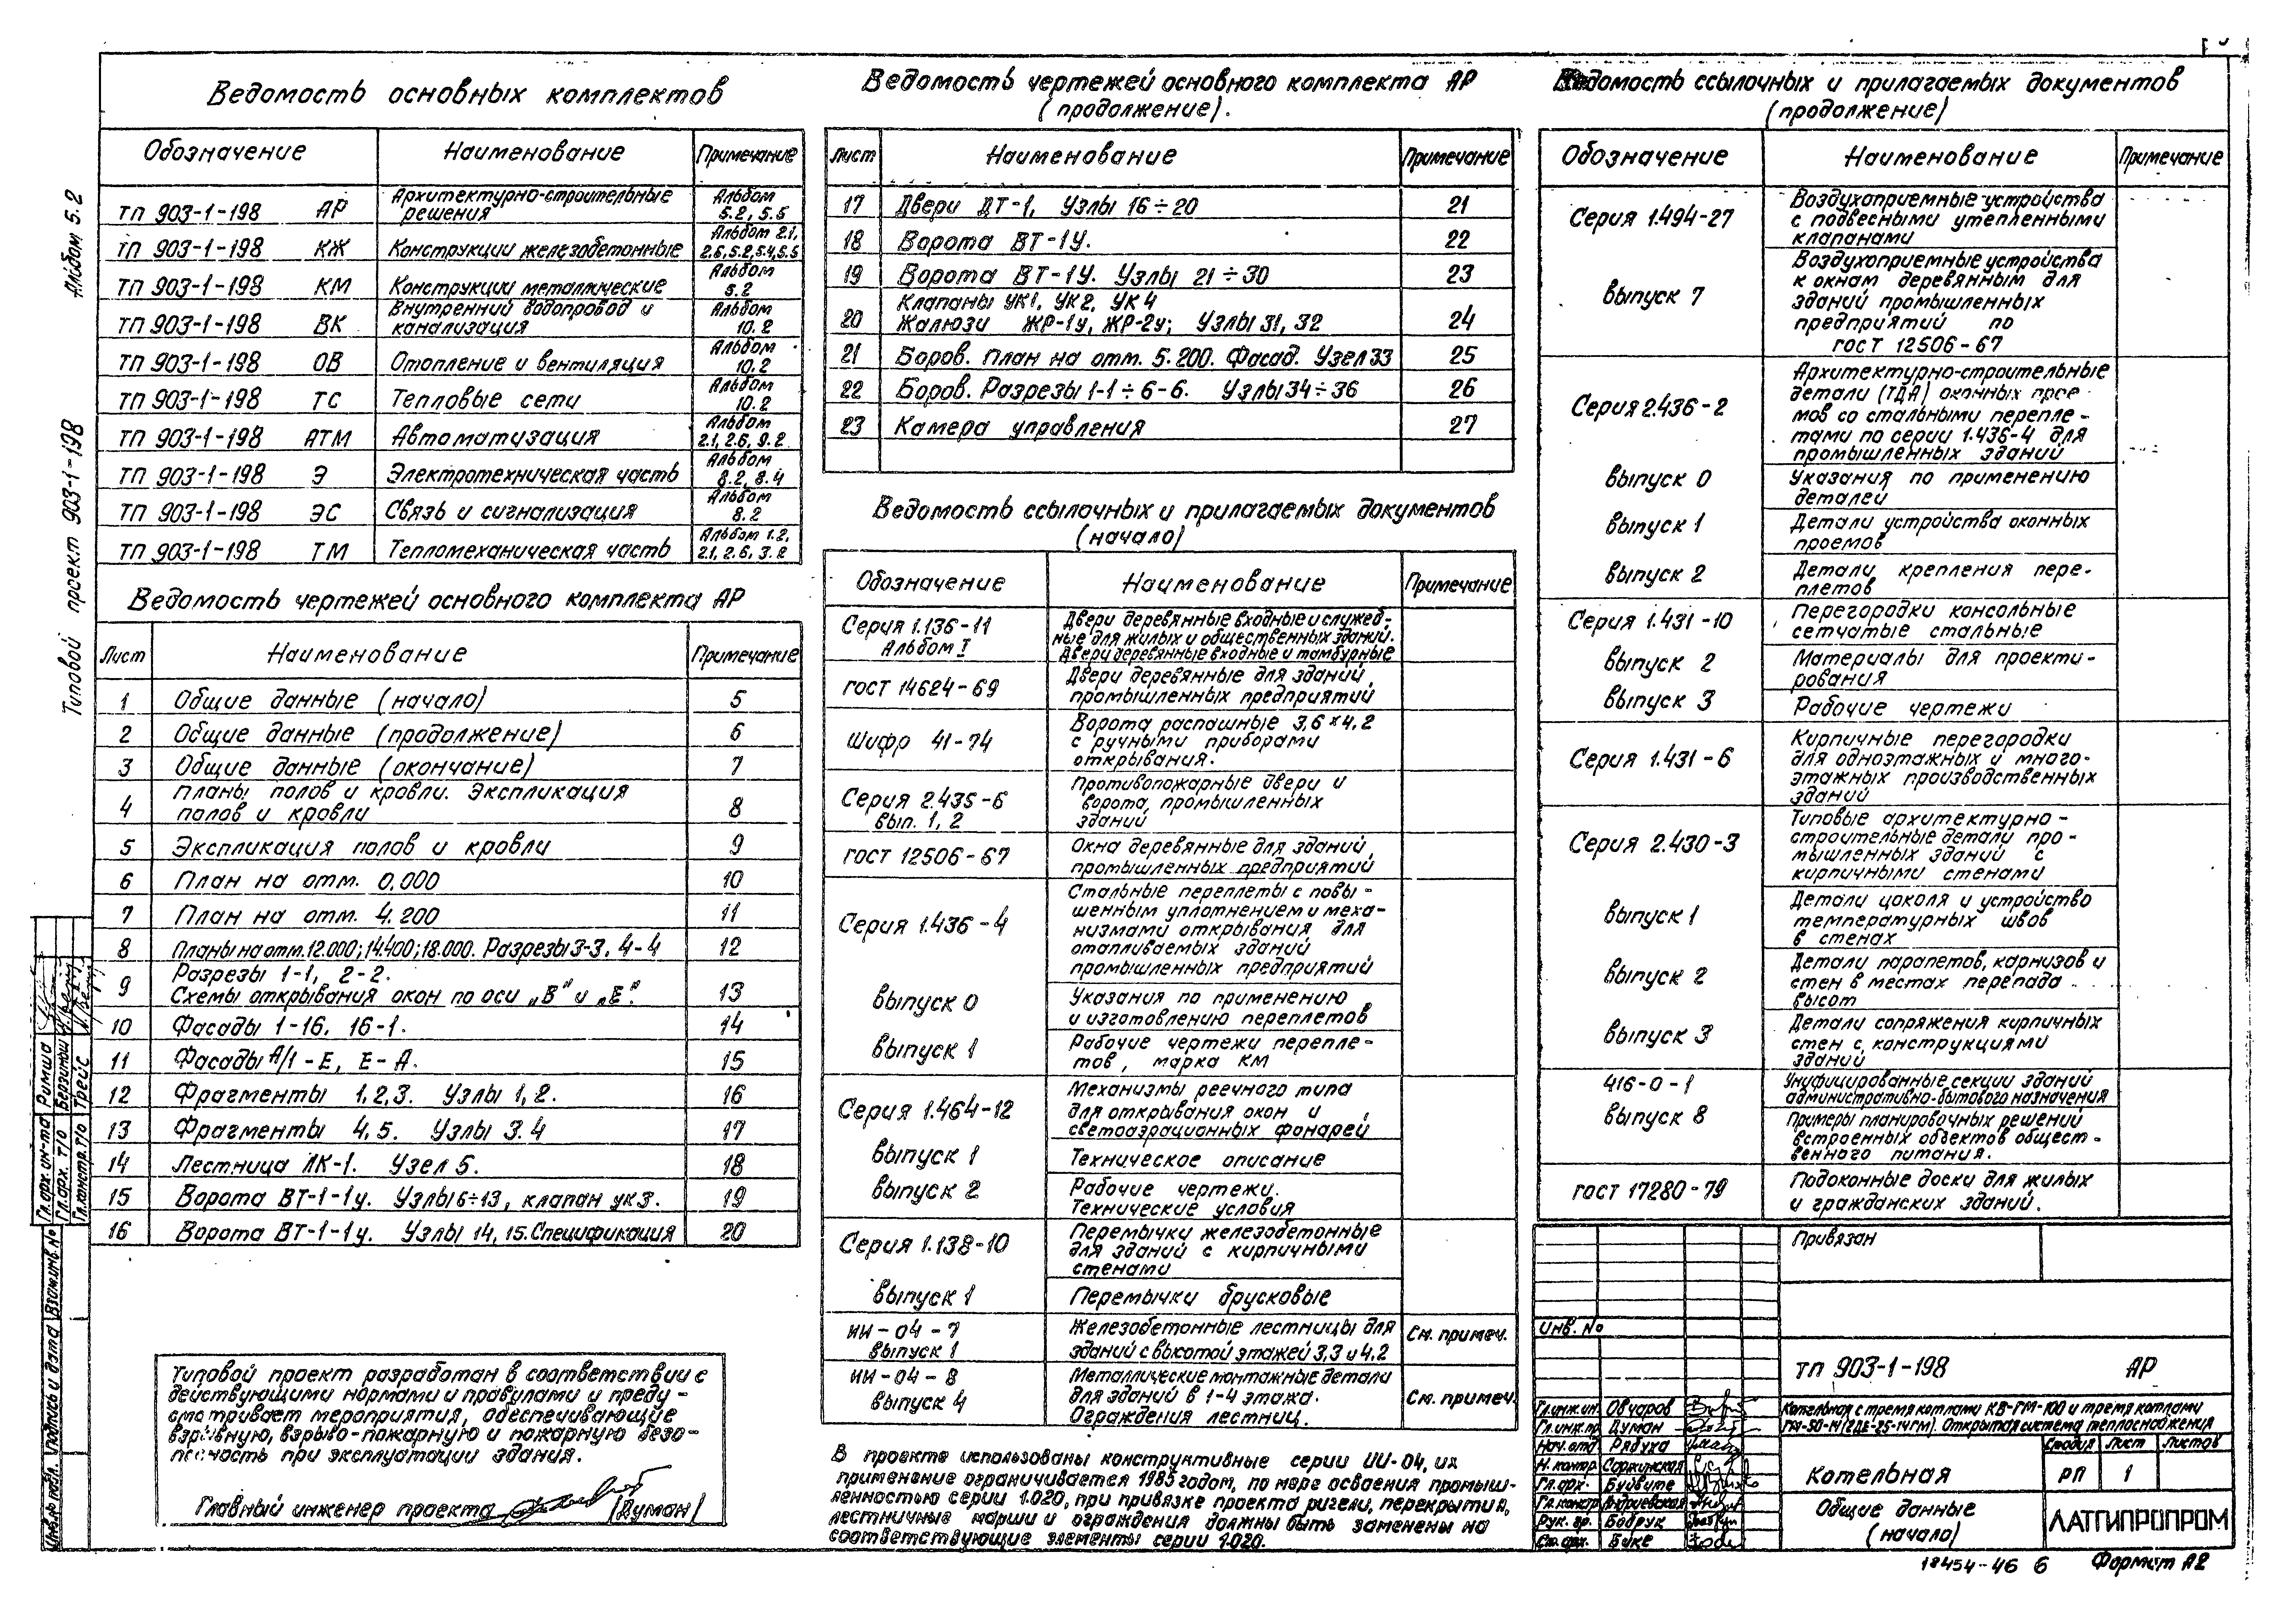 Альбом 5.2
Типовой проект 903-1-198
Ведомость основных комплектов
Обозначение Наименование Примечание
ТП 903-1-198 АР Архитектурно-строительные решения Альбом 5.2, 5.5
ТП 903-1-198 КЖ Конструкции железобетонные Альбом 2.1, 2.6, 5.2, 5.4, 5.5
ТП 903-1-198 КМ Конструкции металлические Альбом 5.2
ТП 903-1-198 ВК Внутренний водопровод и канализация Альбом 10.2
ТП 903-1-198 ОВ Отопление и вентиляция Альбом 10.2
ТП 903-1-198 ТС Тепловые сети Альбом 10.2
ТП 903-1-198 АТМ Автоматизация Альбом 2.1, 2.6, 9.2
ТП 903-1-198 Э Электротехническая часть Альбом 8.2, 8.4
ТП 903-1-198 ЭС Связь и сигнализация Альбом 8.2
ТП 903-1-198 ТМ Тепломеханическая часть Альбом 1.2, 2.1, 2.6, 3.2
Ведомость чертежей основного комплекта АР
Лист Наименование Примечание
1 Общие данные (начало) 5
2 Общие данные (продолжение) 6
3 Общие данные (окончание) 7
4 Планы полов и кровли. Экспликация полов и кровли 8
5 Экспликация полов и кровли 9
6 План на отм. 0,000 10
7 План на отм. 4.200 11
8 Планы на отм. 12.000; 14.400; 18.000. Разрезы 3-3, 4-4 12
9 Разрезы 1-1, 2-2. Схемы открывания окон по оси „В" и „Е". 13
10 Фасады 1-16, 16-1. 14
11 Фасады А/1-Е, Е-А. 15
12 Фрагменты 1,2,3. Узлы 1,2. 16
13 Фрагменты 4,5. Узлы 3.4 17
14 Лестница ЛК-1. Узел 5. 18
15 Ворота ВТ-1-1у. Узлы 6÷13, клапан ук3. 19
16 Ворота ВТ-1-1у. Узлы 14, 15. Спецификация 20
Типовой проект разработан в соответствии с
действующими нормами и правилами и преду-
сматривает мероприятия, обеспечивающие
взрывную, взрыво-пожарную и пожарную безо-
пасность при эксплуатации здания.
Главный инженер проекта (Думан)
Ведомость чертежей основного комплекта АР
(продолжение).
Лист Наименование Примечание
17 Двери ДТ-1, Узлы 16÷20 21
18 Ворота ВТ-1У. 22
19 Ворота ВТ-1У. Узлы 21÷30 23
20 Клапаны УК1, УК2, УК4 Жалюзи ЖР-1у, ЖР-2у; Узлы 31, 32 24
21 Боров. План на отм. 5.200. Фасад. Узел 33 25
22 Боров. Разрезы 1-1÷6-6. Узлы 34÷36 26
23 Камера управления 27
Ведомость ссылочных и прилагаемых документов
(начало)
Обозначение Наименование Примечание
Серия 1.136-11 Альбом I
Двери деревянные входные и служеб-
ные для жилых и общественных зданий.
Двери деревянные входные и тамбурные
ГОСТ 14624-69 Двери деревянные для зданий
промышленных предприятий
Шифр 41-74 Ворота распашные 3,6×4,2
с ручными приборами
открывания.
Серия 2.435-6 вып. 1, 2
Противопожарные двери и
ворота, промышленных
зданий
ГОСТ 12506-67 Окна деревянные для зданий
промышленных предприятий
Серия 1.436-4 Стальные переплеты с повы-
шенным уплотнением и меха-
низмами открывания для
отапливаемых зданий
промышленных предприятий
выпуск 0 Указания по применению
и изготовлению переплетов
выпуск 1 Рабочие чертежи перепле-
тов, марка КМ
Серия 1.464-12 Механизмы реечного типа
для открывания окон и
светоаэрационных фонарей
выпуск 1 Техническое описание
выпуск 2 Рабочие чертежи.
Технические условия
Серия 1.138-10 Перемычки железобетонные
для зданий с кирпичными
стенами
выпуск 1 Перемычки брусковые
ИИ-04-7 выпуск 1 Железобетонные лестницы для
зданий с высотой этажей 3,3 и 4,2 См. примеч.
ИИ-04-8 выпуск 4 Металлические монтажные детали
для зданий в 1-4 этажа.
Ограждения лестниц. См. примеч.
В проекте использованы конструктивные серии ИИ-04, их
применение ограничивается 1985 годом, по мере освоения промыш-
ленностью серии 1.020, при привязке проекта ригели, перекрытия,
лестничные марши и ограждения должны быть заменены на
соответствующие элементы серии 1.020.
Ведомость ссылочных и прилагаемых документов
(продолжение)
Обозначение Наименование Примечание
Серия 1.494-27 Воздухоприемные устройства
с подвесными утепленными
клапанами
выпуск 7 Воздухоприемные устройства
к окнам деревянным для
зданий промышленных
предприятий по
ГОСТ 12506-67
Серия 2.436-2 Архитектурно-строительные
детали (ТДА) оконных прое-
мов со стальными перепле-
тами по серии 1.436-4 для
промышленных зданий
выпуск 0 Указания по применению
деталей
выпуск 1 Детали устройства оконных
проемов
выпуск 2 Детали крепления пере-
плетов
Серия 1.431-10 Перегородки консольные
сетчатые стальные
выпуск 2 Материалы для проекти-
рования
выпуск 3 Рабочие чертежи
Серия 1.431-6 Кирпичные перегородки
для одноэтажных и много-
этажных производственных
зданий
Серия 2.430-3 Типовые архитектурно-
строительные детали про-
мышленных зданий с
кирпичными стенами
выпуск 1 Детали цоколя и устройство
температурных швов
в стенах
выпуск 2 Детали парапетов, карнизов и
стен в местах перепада
высот
выпуск 3 Детали сопряжения кирпичных
стен с конструкциями
зданий
416-0-1 Унифицированные секции зданий
административно-бытового назначения
выпуск 8 Примеры планировочных решений
встроенных объектов общест-
венного питания.
ГОСТ 17280-79 Подоконные доски для жилых
и гражданских зданий.
Привязан
Инв. №
ТП 903-1-198 АР
Котельная с тремя котлами КВ-ГМ-100 и тремя котлами
Открытая система теплоснабжения
Гл.инж.ин. Овчаров
Гл.инж.пр. Думан
Нач.отд. Рябуха
Н. контр.
Гл.арх. Буйвите
Гл.констр. Андриевская
Рук. гр. Бобрук
Ст. арх. Буке
Котельная
Стадия Лист Листов
РП 1
Общие данные
(начало)
ЛАТГИПРОПРОМ
18454-46 6 Формат А2
Гл.арх.ин-та Римша
Гл.арх. Т/О Берзиньш
Гл.констр. Т/О Трейс
Взам.инв.№
Подпись и дата
Инв.№ подл.